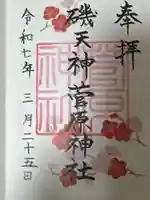 奉拝
磯天神菅原神社
令和七年 三月二十五日